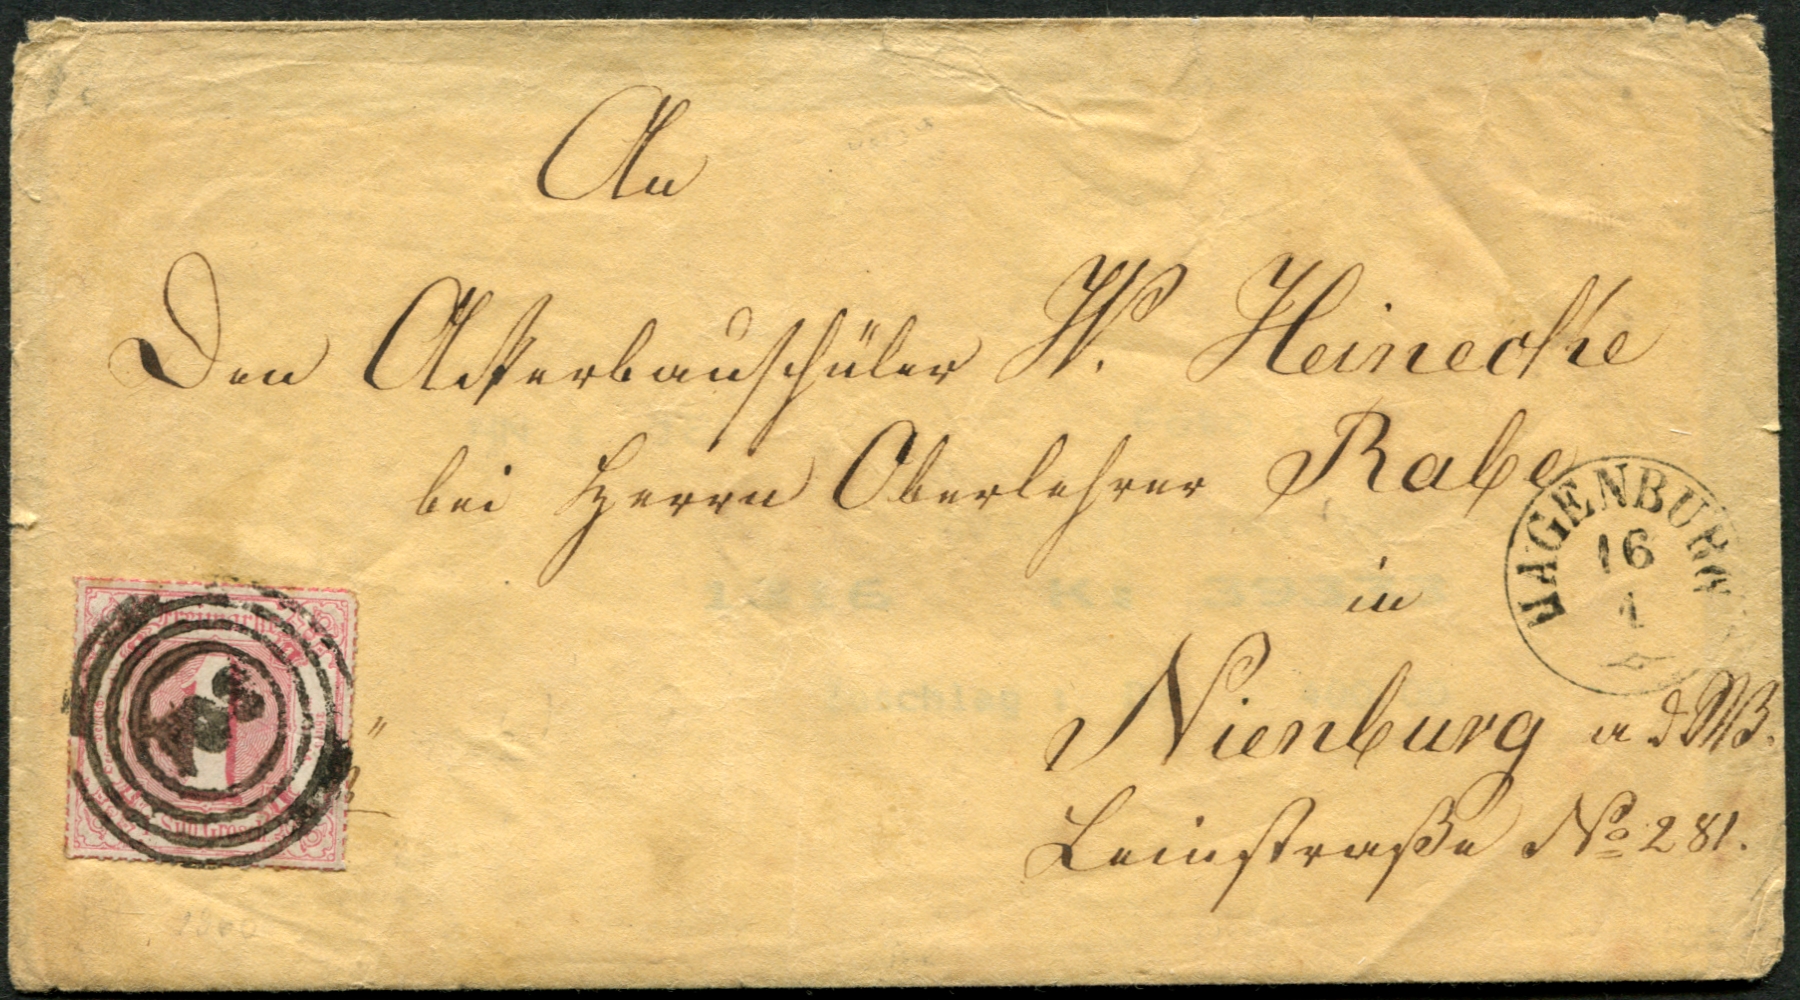 An
Den Ackerbauschüler W. Heinecke
bei Herrn Oberlehrer Rabe
HAGENBURG
16
1
in
Nienburg a d W.
Leinstraße No 281.
1